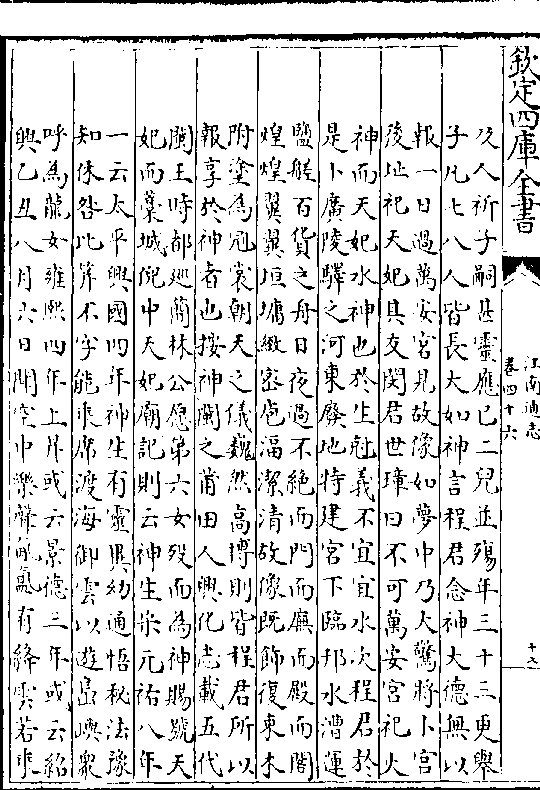 欽定四庫全書
江南通志
卷四十六
及人祈子嗣甚靈應已二兒並殤年三十三更舉
子凡七八人皆長大如神言程君念神大德無以
報一日過萬安宫見故像如夢中乃大驚將卜宫
後址祀天妃具文関君世璋曰不可萬安宫祀火
神而天妃水神也於生尅義不宜宜水次程君於
是卜廣陵驛之河東廢地特建宫下臨邗水漕運
鹽艘百貨之舟日夜過不絶而門而廡而殿而閣
煌煌翼翼垣墉緻密庖湢潔清故像既飾復東木
附塗為冠裳朝天之儀魏然高搏則皆程君所以
報享於神者也按神閩之莆田人興化志載五代
閩王時都廵簡林公愿第六女殁而為神賜號天
妃而藁城倪中天妃廟記則云神生宋元祐八年
一云太平興國四年神生有靈異幼通悟秘法豫
知休咎比笄不字能乗席渡海御雲以遊島嶼衆
呼為龍女雍熙四年上升或云景德三年或云紹
興乙丑八月六日聞空中樂聲氤氲有絳雲若乗